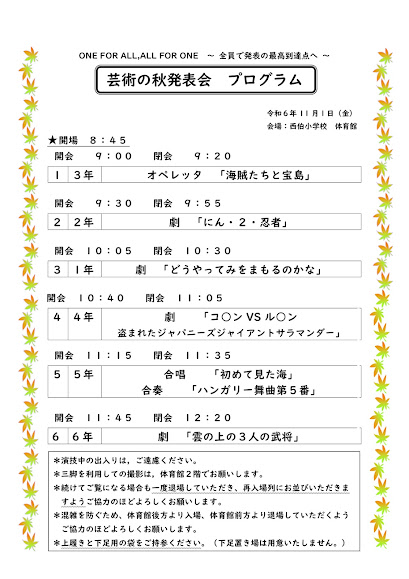 ONE FOR ALL,ALL FOR ONE ～ 全員で発表の最高到達点へ ～
芸術の秋発表会 プログラム
令和6年11月1日（金）
会場：西伯小学校 体育館
★開場 8：45
開会 9：00 閉会 9：20
1 3年 オペレッタ 「海賊たちと宝島」
開会 9：30 閉会 9：55
2 2年 劇 「にん・2・忍者」
開会 10：05 閉会 10：30
3 1年 劇 「どうやってみをまもるのかな」
開会 10：40 閉会 11：05
4 4年 劇 「コ○ン VS ル○ン
盗まれたジャパニーズジャイアントサラマンダー」
開会 11：15 閉会 11：35
5 5年 合唱 「初めて見た海」
合奏 「ハンガリー舞曲第5番」
開会 11：45 閉会 12：20
6 6年 劇 「雲の上の3人の武将」
＊演技中の出入りは，ご遠慮ください。
＊三脚を利用しての撮影は，体育館2階でお願いします。
＊続けてご覧になる場合も一度退場していただき、再入場列にお並びいただきま
すようご協力のほどよろしくお願いします。
＊混雑を防ぐため、体育館後方より入場、体育館前方より退場していただくよう
ご協力のほどよろしくお願いします。
＊上履きと下足用の袋をご持参ください。（下足置き場は用意いたしません。）